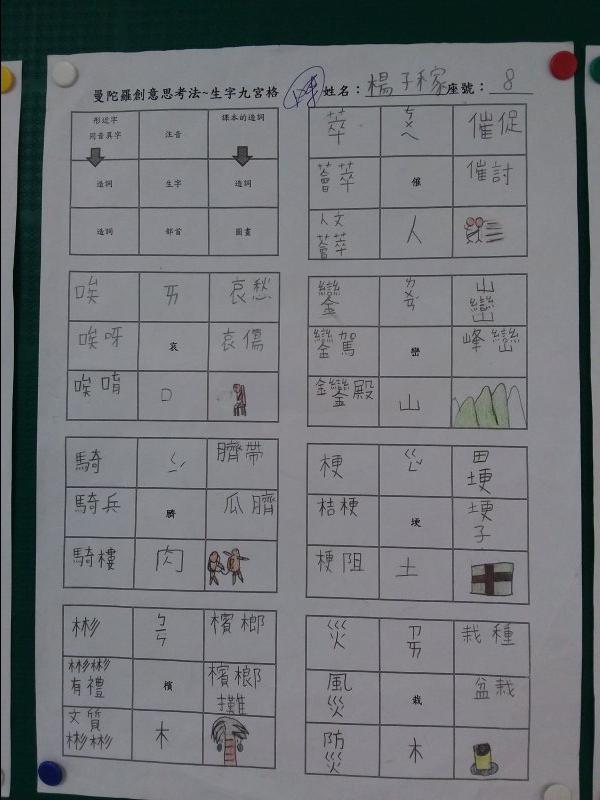 曼陀羅創意思考法~生字九宮格 姓名：楊子稼座號：8
形近字
同音異字
注音
課本的造詞
造詞
生字
造詞
造詞
部首
圖畫
萃
ㄘㄨㄟ
催促
薈萃
催
催討
人文
薈萃
人
唉
ㄞ
哀愁
唉呀
哀
哀傷
唉唷
口
鑾
ㄌㄨㄢˊ
山
巒
鑾駕
巒
峰巒
金鑾殿
山
騎
ㄑㄧˊ
臍帶
騎兵
臍
瓜臍
騎樓
肉
梗
ㄍㄥˇ
田
埂
桔梗
埂
埂
子
梗阻
土
彬
ㄅㄧㄣ
檳榔
彬彬
有禮
檳
檳榔
攤
文質
彬彬
木
災
ㄗㄞ
栽種
風
災
栽
盆栽
防
災
木